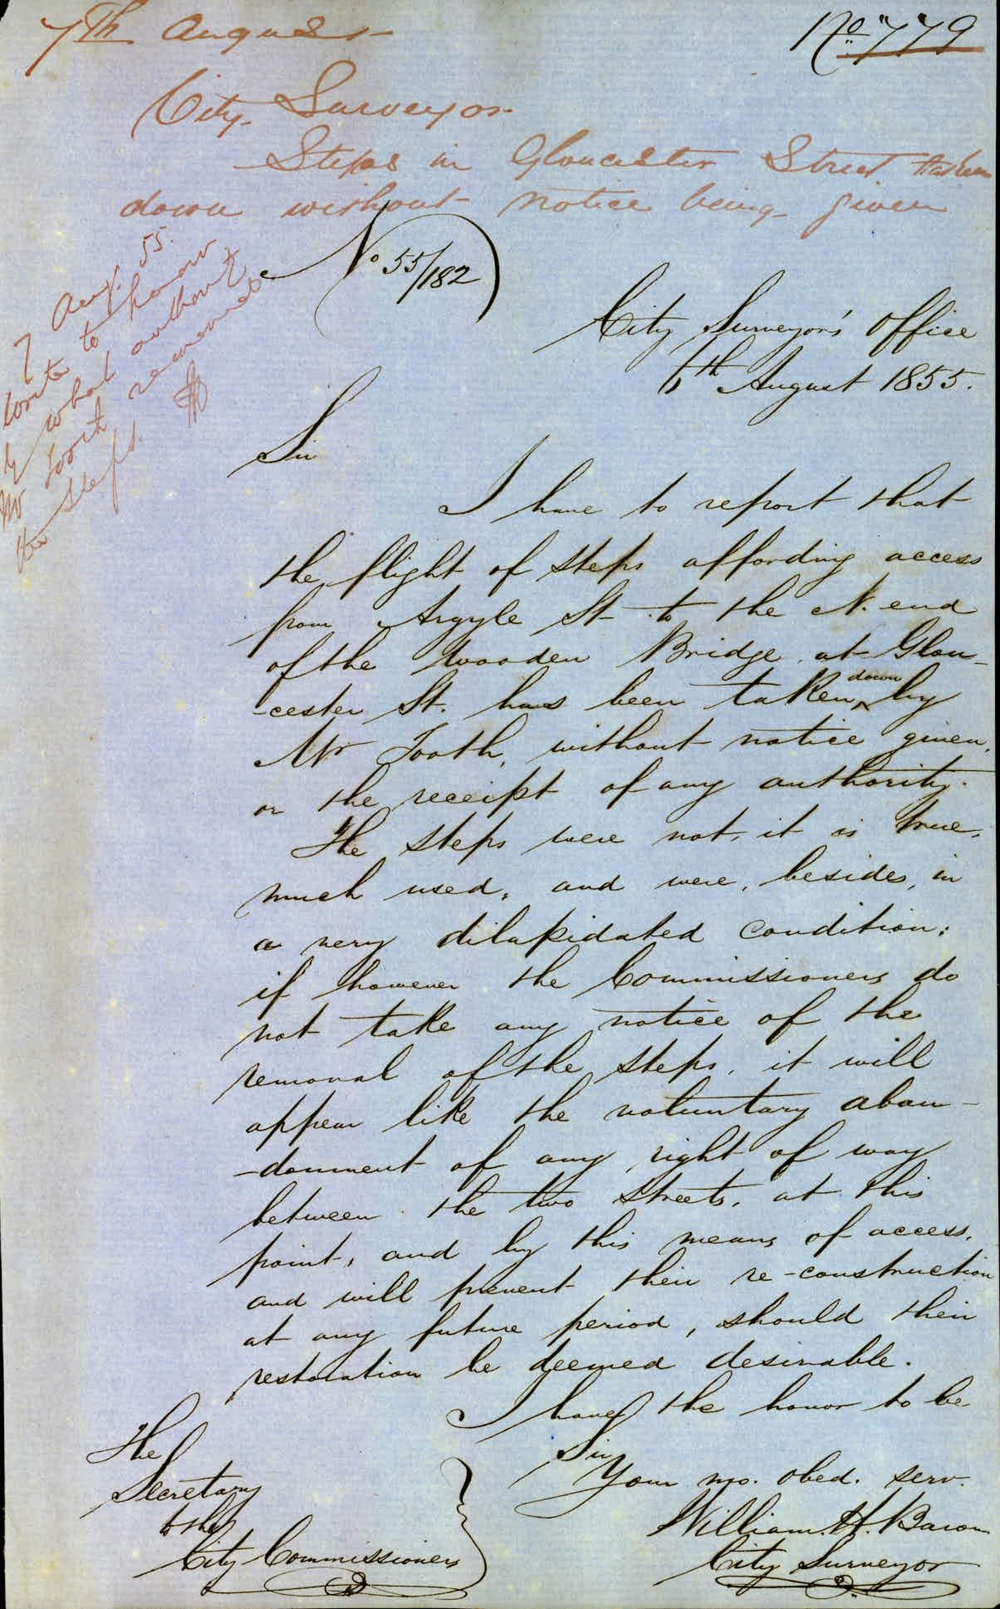 7th August
No. 779
City Surveyor
Steps in Gloucester Street taken
down without notice being given
No 55/182
7 Augt. 55.
Write to know
by what authority
Mr Tooth removed
the steps.
City Surveyor's Office
6th August 1855.
Sir
I have to report that
the flight of steps affording access
from Argyle St. to the N. end
of the Wooden Bridge at Glou-
-cester St. has been taken down by
Mr Tooth, without notice given,
or the receipt of any authority.
The steps were not, it is true,
much used, and were, besides, in
a very dilapidated condition:
if however the Commissioners do
not take any notice of the
removal of the steps, it will
appear like the voluntary aban-
-donment of any right of way
between the two Streets, at this
point, and by this means of access,
and will prevent their re-construction
at any future period, should their
restoration be deemed desirable.
I have the honor to be
Sir
Your mo. obed. serv.
William H. Baron
City Surveyor
The
Secretary
to the
City Commissioners